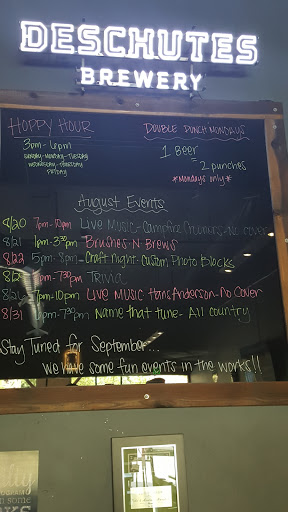 DESCHUTES
BREWERY
HOPPY HOUR
3pm-6pm
Sunday-Monday-Tuesday
Wednesday-Thursday
Friday
DOUBLE PUNCH MONDAYS
1 Beer
=
2 punches
*Mondays only*
August Events
8/20 7pm-10pm LIVE Music-Campfire No Cover
8/21 1pm-3:30pm Brushes-N-Brews
8/22 5pm-8pm Craft Night-Custom Photo Blocks
7:30pm Trivia
7pm-10pm LIVE MUSIC Hans Anderson-No Cover
8/31 7:30pm Name that tune- All country
Stay Tuned for September...
we have some fun events in the works!!